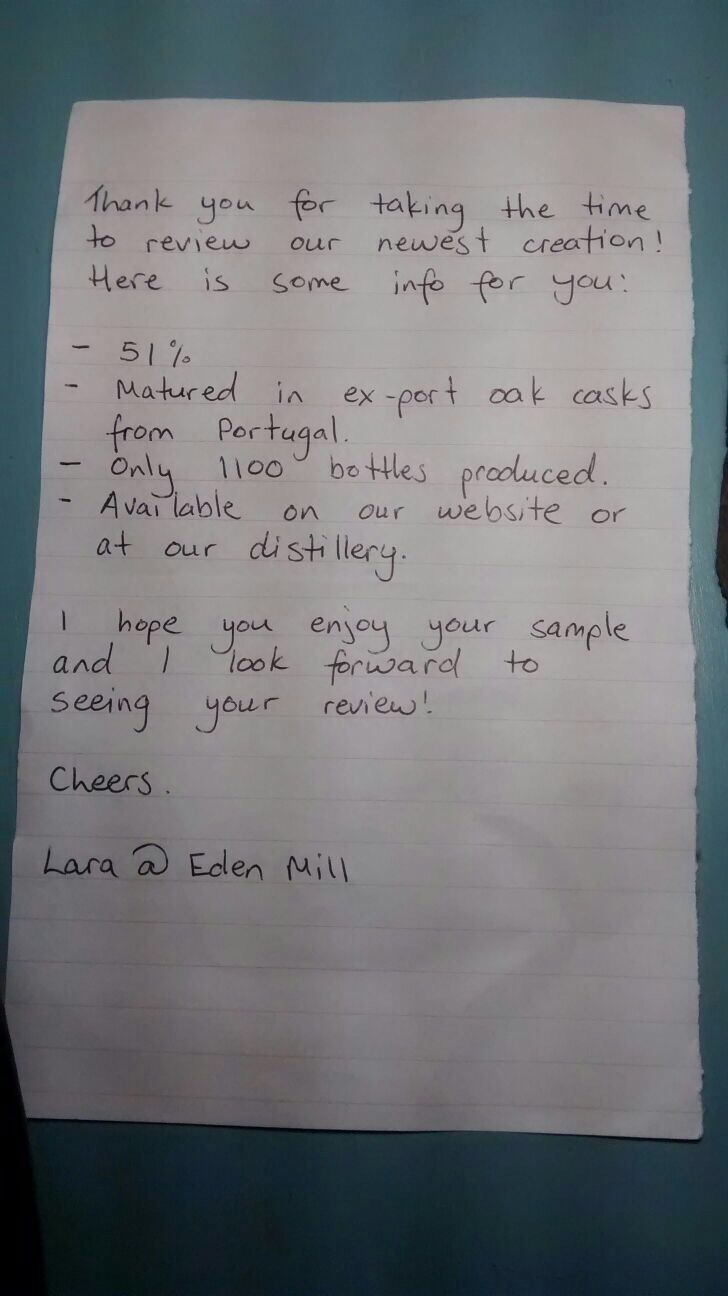 Thank you for taking the time
to review our newest creation!
Here is some info for you:
- 51%
- Matured in ex-port oak casks
from Portugal.
- Only 1100 bottles produced.
- Available on our website or
at our distillery.
I hope you enjoy your sample
and I look forward to
seeing your review!
Cheers.
Lara @ Eden Mill